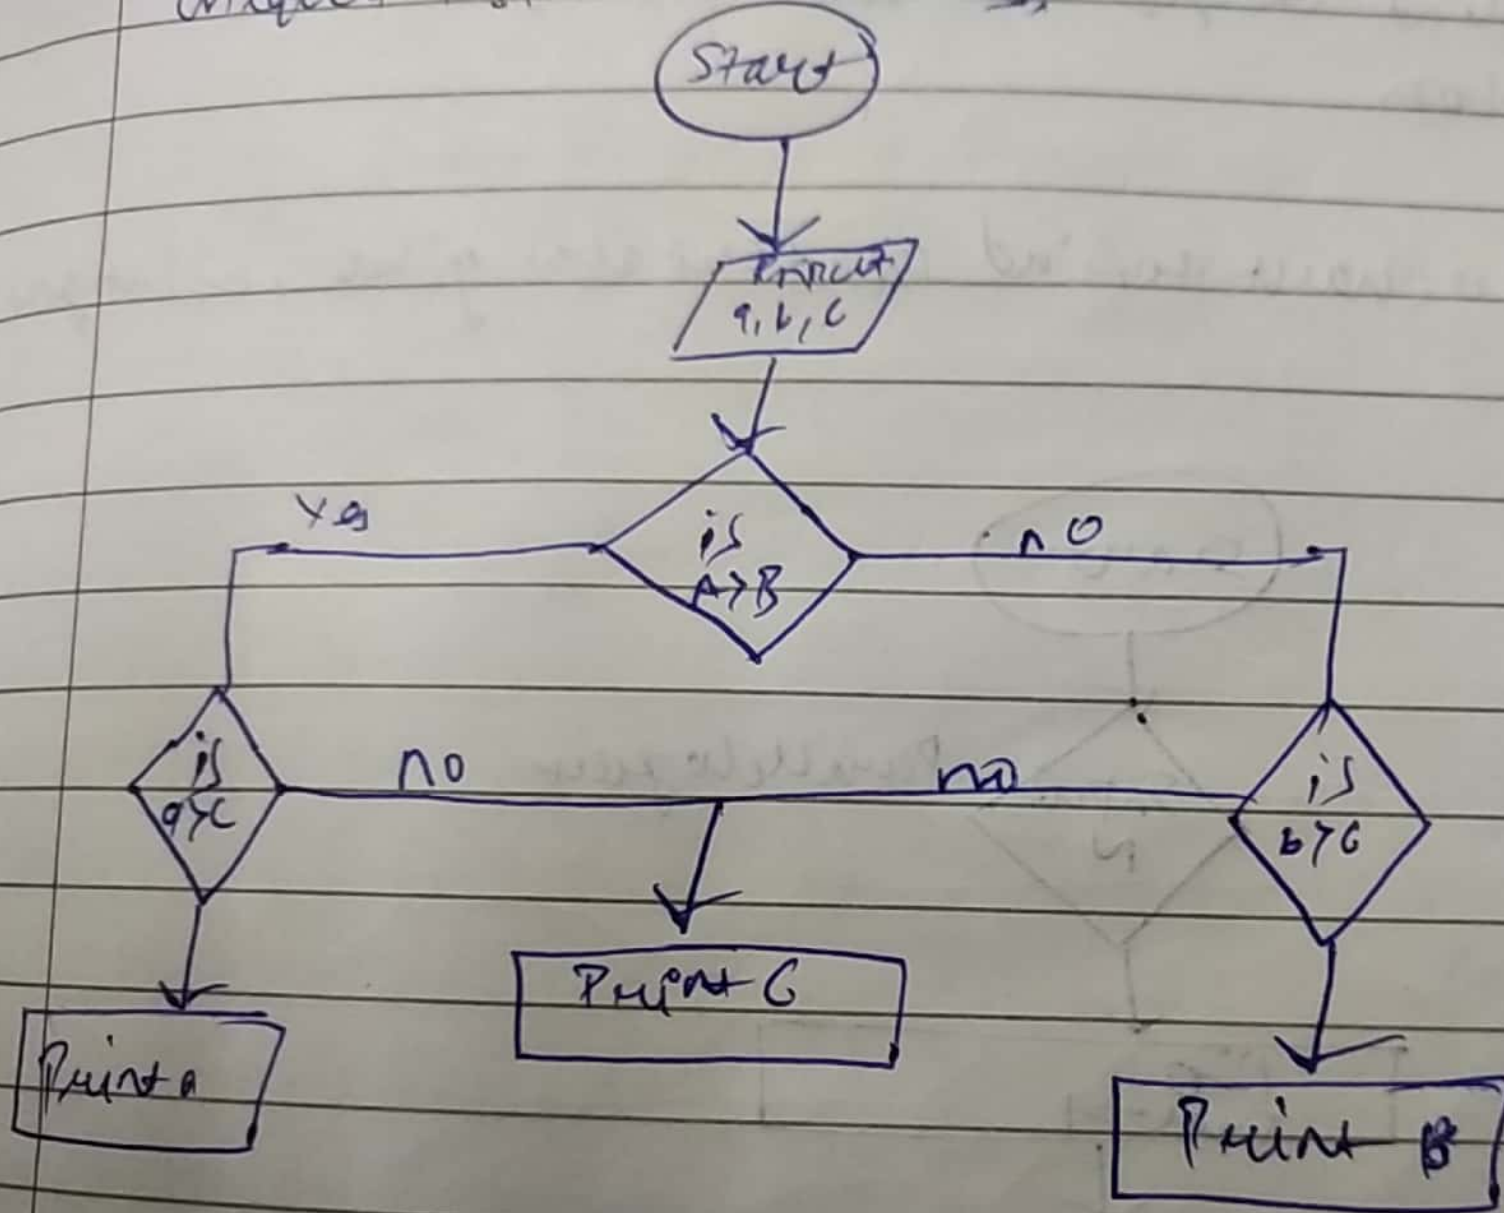 Start
a, b, c
is
A>B
Yes
no
is
a>c
no
no
is
b>c
Print C
Print a
Print B